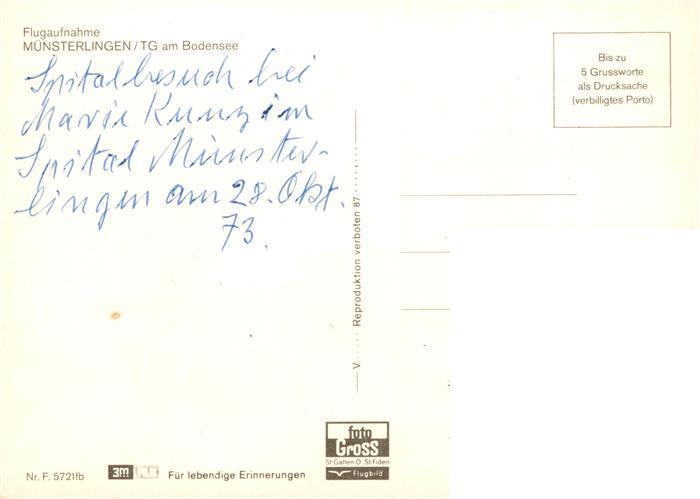 Flugaufnahme
MÜNSTERLINGEN/TG am Bodensee
Spitalbesuch bei
Marie Kunz im
Spital Münster-
lingen am 28. Okt.
73.
Bis zu
5 Grussworte
als Drucksache
(verbilligtes Porto)
V ..... Reproduktion verboten 87 ........
foto
Gross
St Gallen O St Fiden
Flugbild
Nr. F. 5721fb
3m
Für lebendige Erinnerungen